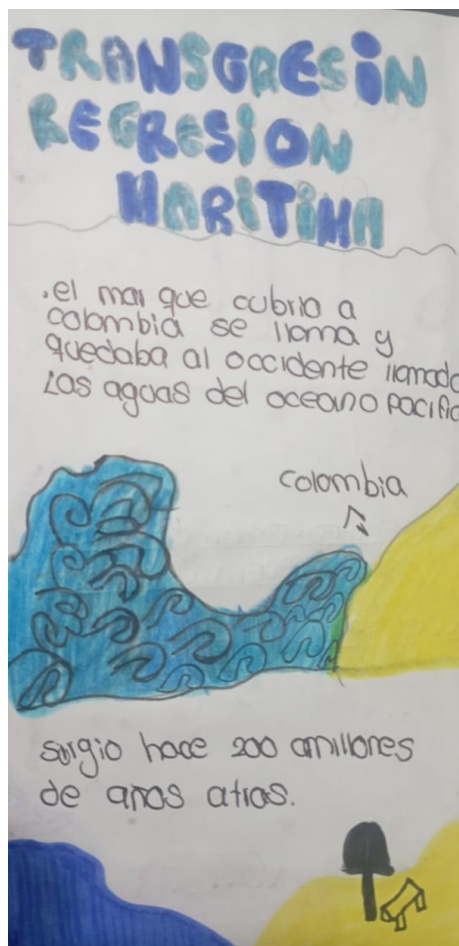 TRANSGRESIN
REGRESION
MARITIMA
.el mar que cubrio a
colombia se llama y
quedaba al occidente llamado
Las aguas del oceano pacific
colombia
surgio hace 200 amillones
de anos atras.